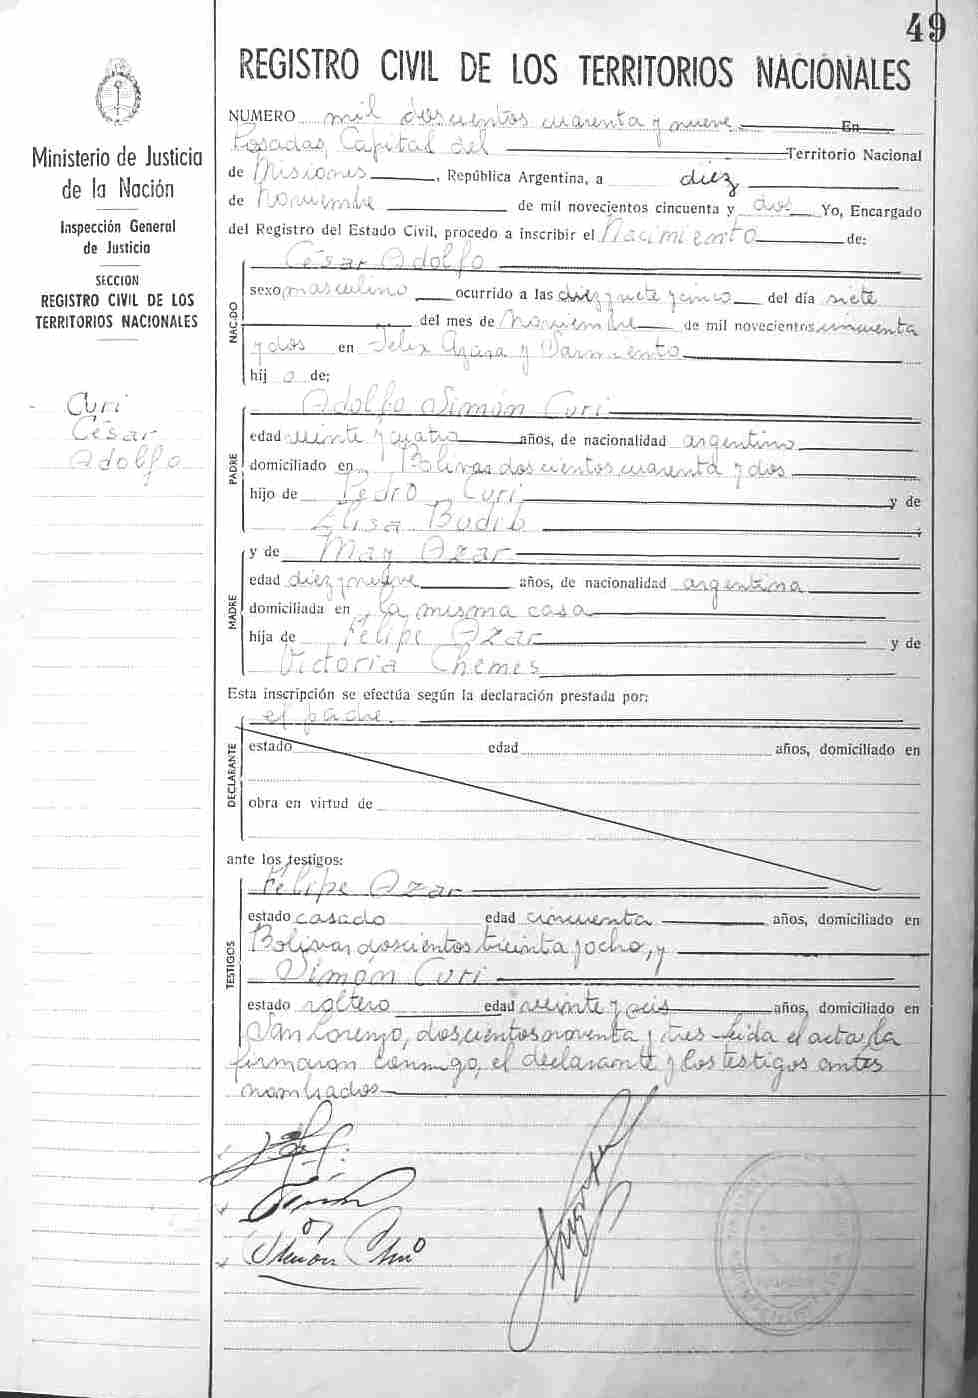 49
REGISTRO CIVIL DE LOS TERRITORIOS NACIONALES
Ministerio de Justicia
de la Nación
Inspección General
de Justicia
SECCION
REGISTRO CIVIL DE LOS
TERRITORIOS NACIONALES
Curi
César
Adolfo
NUMERO mil doscuentos cuarenta y nueve En
Posadas, Capital del Territorio Nacional
de Misiones, República Argentina, a diez
de Noviembre de mil novecientos cincuenta y dos Yo, Encargado
del Registro del Estado Civil, procedo a inscribir el Nacimiento de:
NACIDO
César Adolfo
sexo masculino ocurrido a las diez y siete y cinco del día siete
del mes de Noviembre de mil novecientos cincuenta
y dos en Felix Azara y Sarmiento
hij o de:
PADRE
Adolfo Simón Curi
edad veinte y cuatro años, de nacionalidad argentino
domiciliado en, Bolivar doscientos cuarenta y dos
hijo de Pedro Curi y de
Elisa Budib
MADRE
y de May Azar
edad diez y nueve años, de nacionalidad argentina
domiciliada en, la misma casa
hija de Felipe Azar y de
Victoria Chemes
Esta inscripción se efectúa según la declaración prestada por:
el padre.
DECLARANTE
estado edad años, domiciliado en
obra en virtud de
ante los testigos:
TESTIGOS
Felipe Azar
estado casado edad cincuenta años, domiciliado en
Bolivar doscientos treinta y ocho, y
Simón Curi
estado soltero edad veinte y seis años, domiciliado en
San Lorenzo, doscientos noventa y tres leida el acta, la
firmaron conmigo, el declarante y los testigos antes
nombrados
Simón Curi